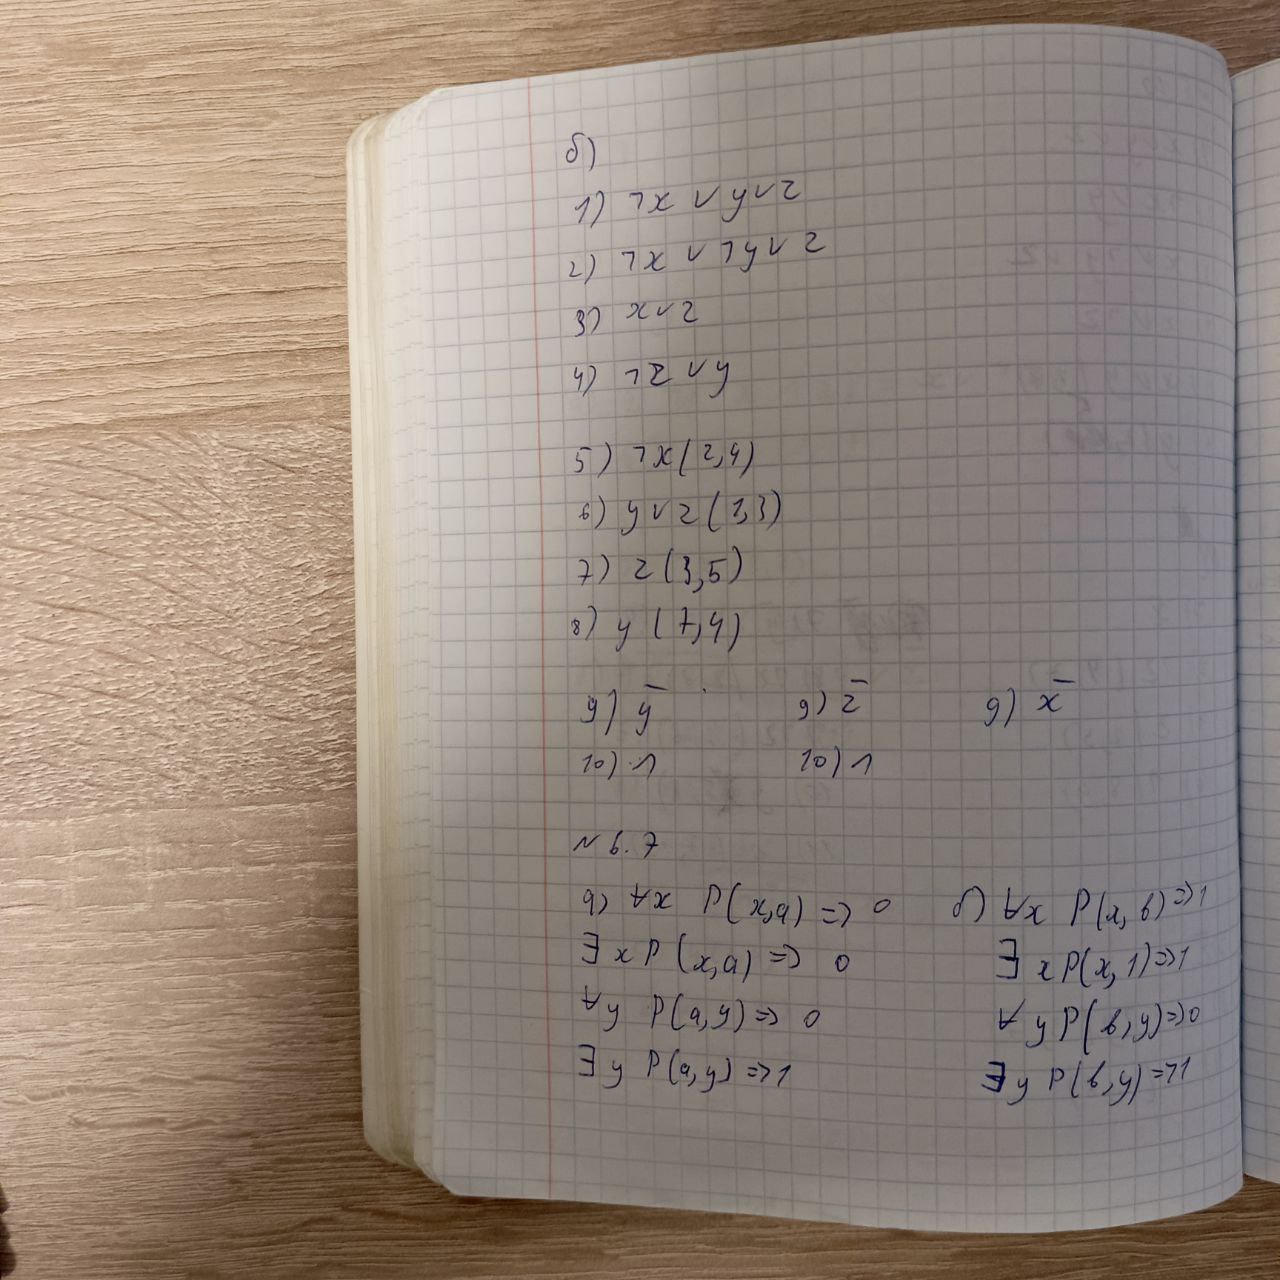 б)
1) ¬x ∨ y ∨ z
2) ¬x ∨ ¬y ∨ z
3) x ∨ z
4) ¬z ∨ y
5) ¬x (2,4)
6) y ∨ z (1,3)
7) z (3,5)
8) y (7,4)
9) y̅ 9) z̅ 9) x̅
10) 1 10) 1
№ 6.7
а) ∀x P(x,a) => 0 б) ∀x P(x,b) => 1
∃x P(x,a) => 0 ∃x P(x,1) => 1
∀y P(a,y) => 0 ∀y P(b,y) => 0
∃y P(a,y) => 1 ∃y P(b,y) => 1